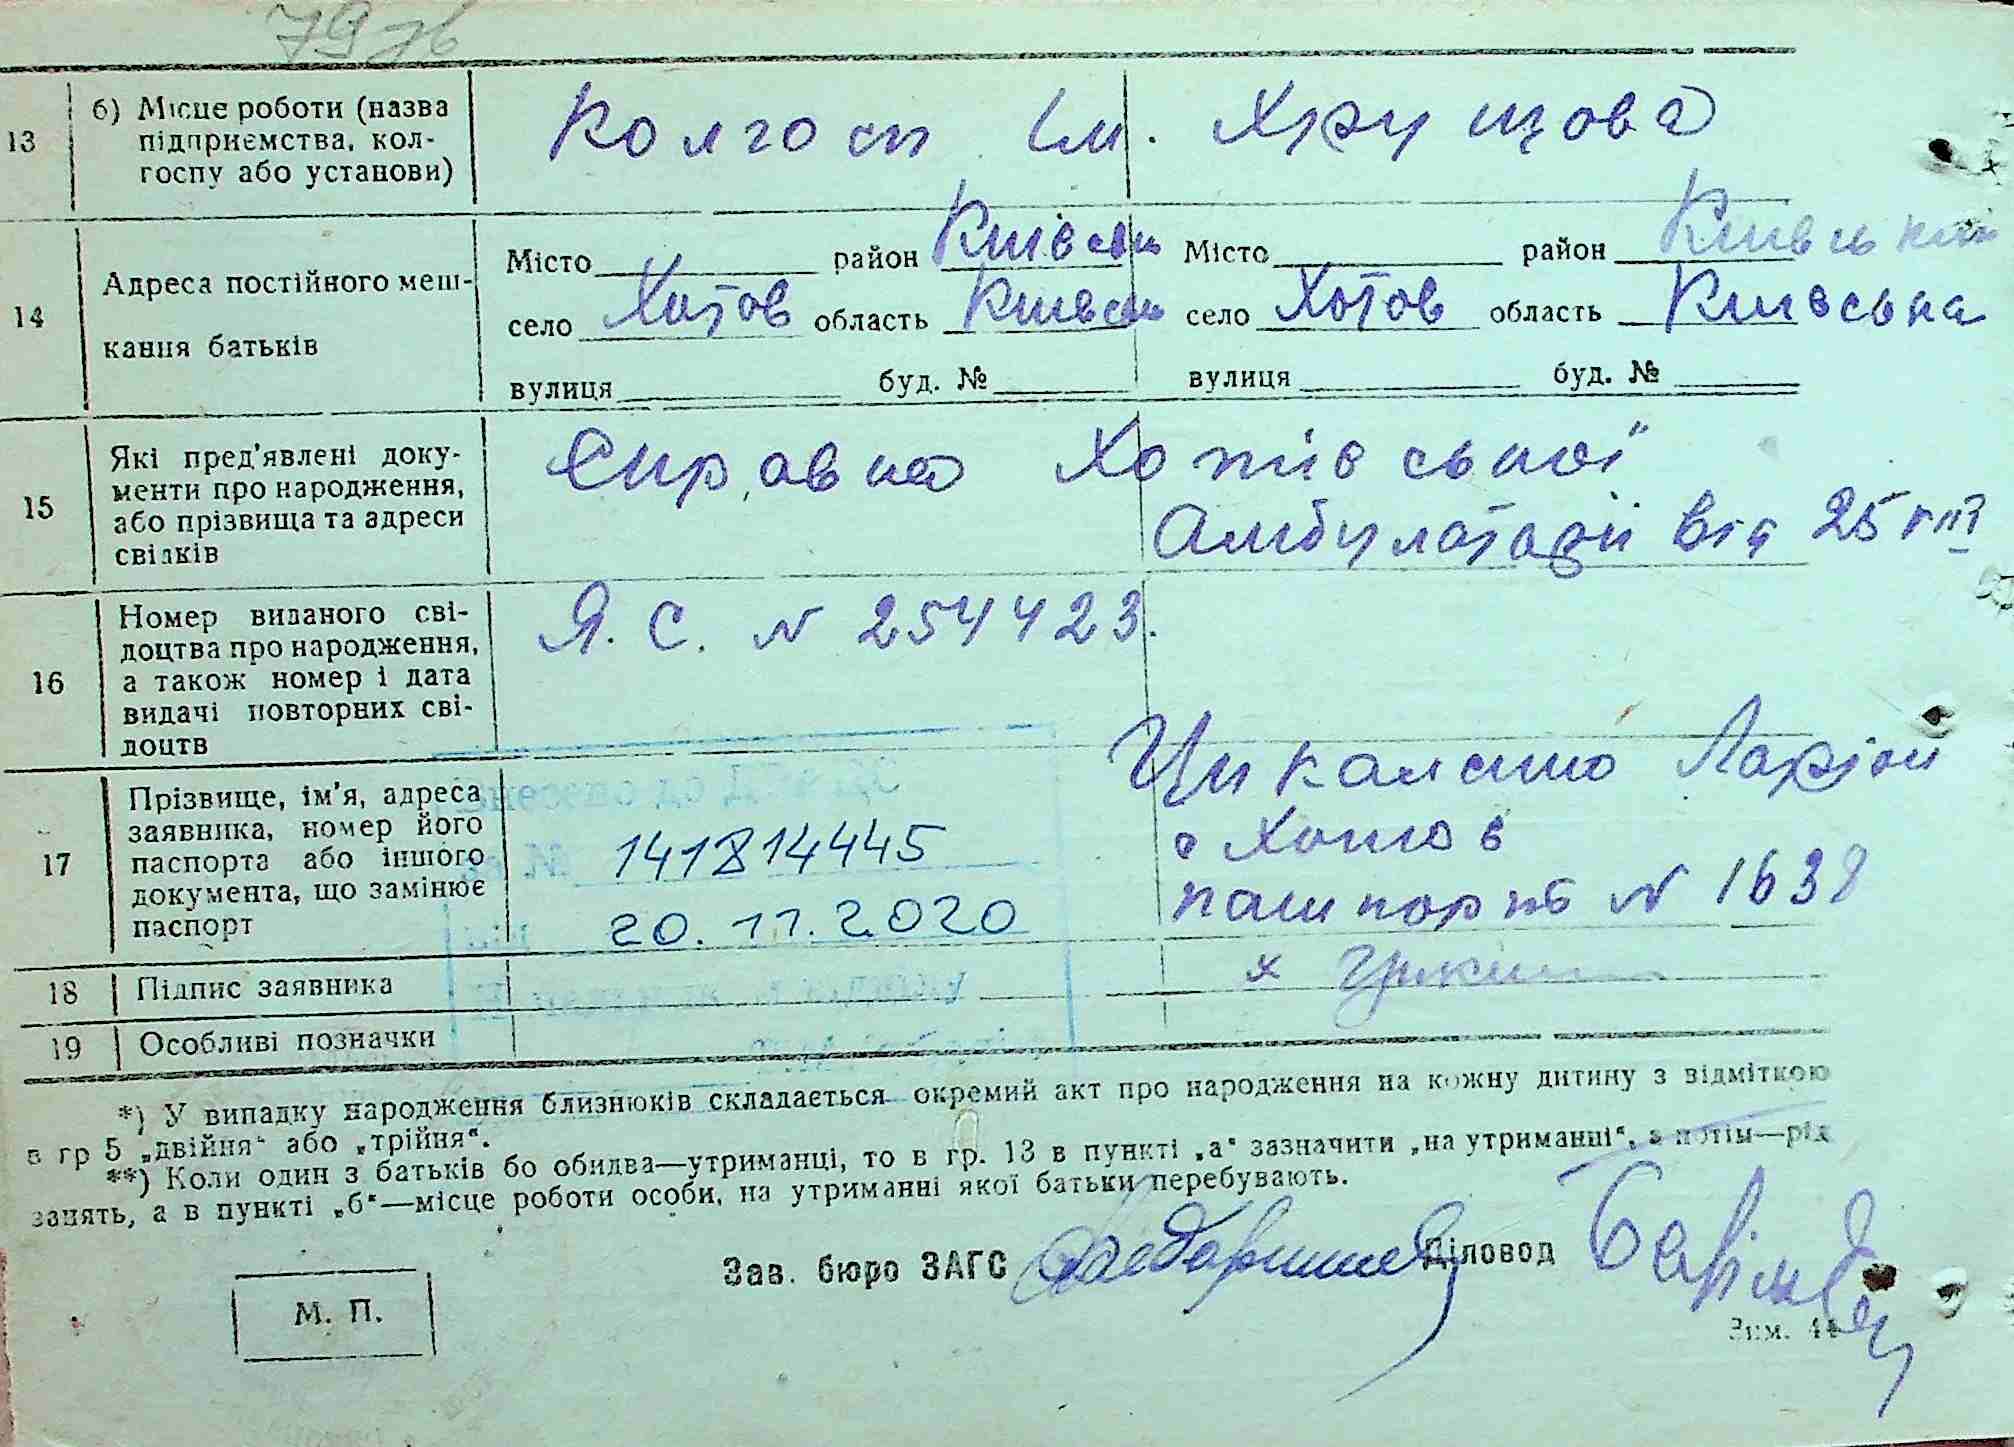 79 зв
13
б) Місце роботи (назва
підприємства, кол-
госпу або установи)
Колгосп ім. Хрущова
14
Адреса постійного меш-
кання батьків
Місто район Київськ Місто район Київський
село Хотов область Київськ село Хотов область Київська
вулиця буд. № вулиця буд. №
15
Які пред'явлені доку-
менти про народження,
або прізвища та адреси
свідків
Справка Хотівської
Амбулаторії від 25
16
Номер виданого сві-
доцтва про народження,
а також номер і дата
видачі повторних сві-
доцтв
Я. С. N 254423.
17
Прізвище, ім'я, адреса
заявника, номер його
паспорта або іншого
документа, що замінює
паспорт
141814445
20.11.2020
Ларіон
с Хотов
пашпорт N 1638
18
Підпис заявника
х
19
Особливі позначки
*) У випадку народження близнюків складається окремий акт про народження на кожну дитину з відміткою
в гр 5 „двійня“ або „трійня“.
**) Коли один з батьків бо обидва—утриманці, то в гр. 13 в пункті „а“ зазначити „на утриманні“, а потім—рід
занять, а в пункті „б“—місце роботи особи, на утриманні якої батьки перебувають.
Зав. бюро ЗАГС Діловод
М. П.
Зам.